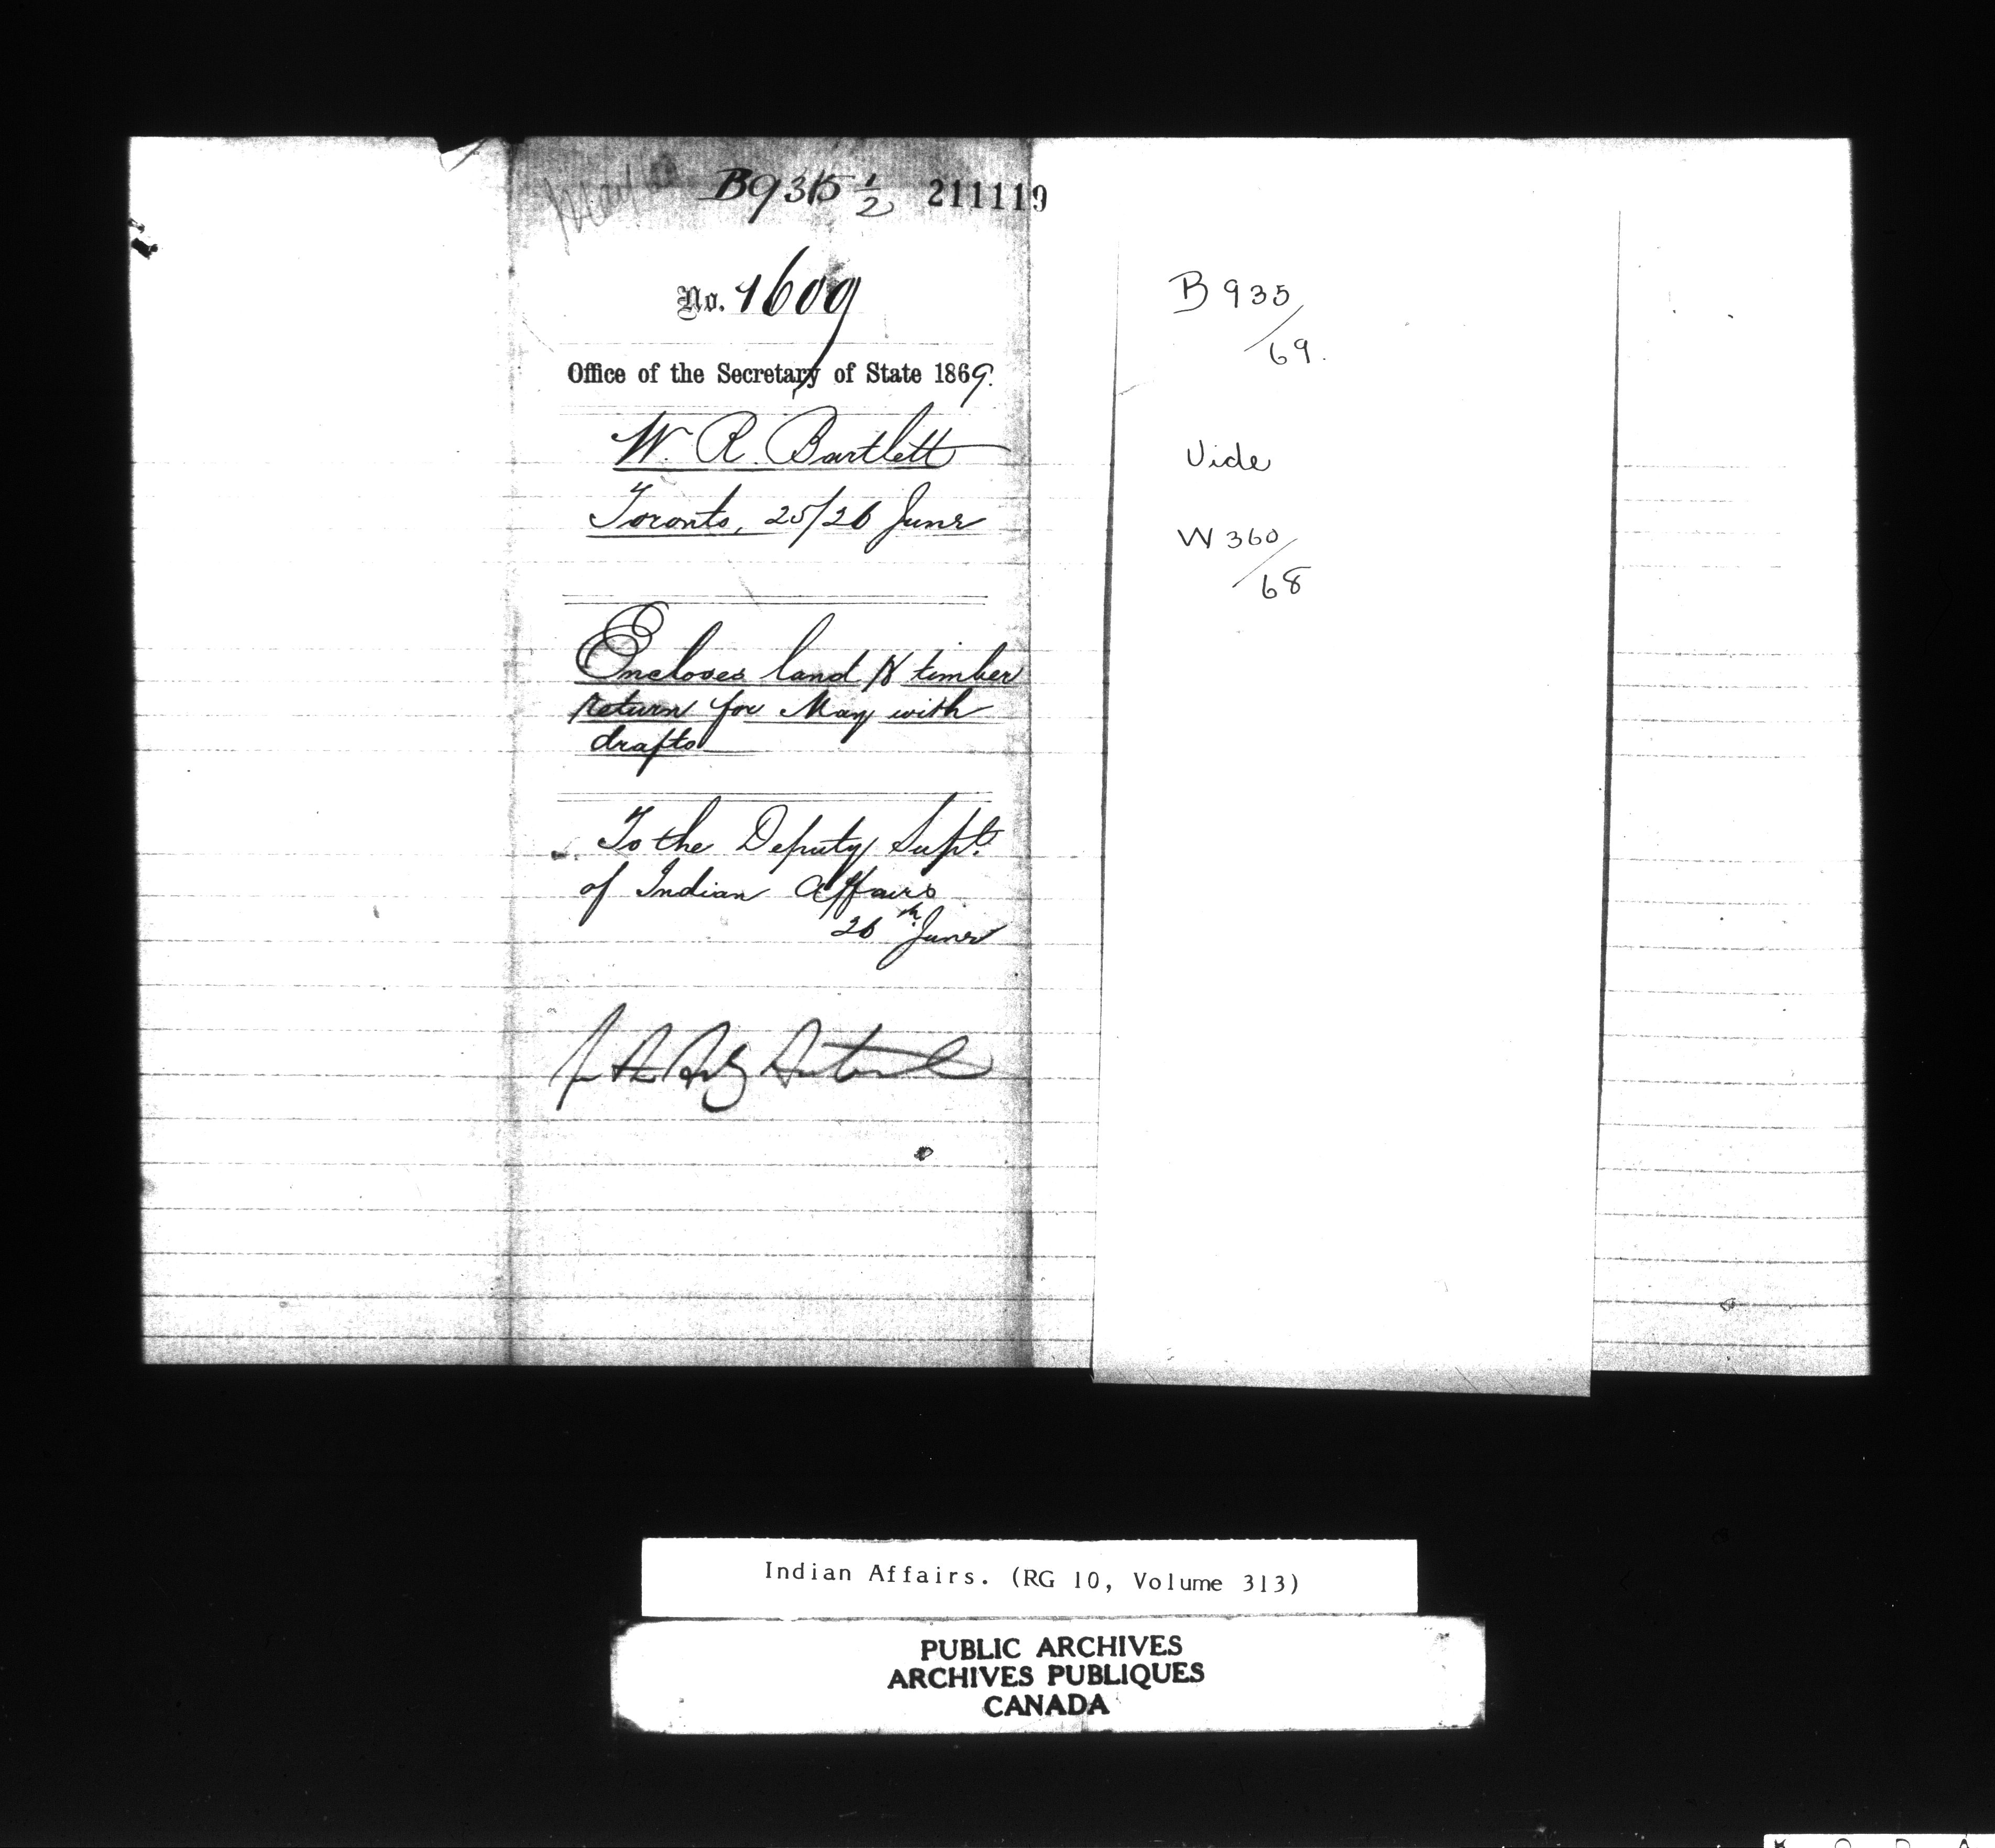 B935 1/2 211119
No. 1609
Office of the Secretary of State 1869.
W. R. Bartlett
Toronto, 25/26 June
Encloses land & timber
return for May with
drafts
To the Deputy Supt.
of Indian Affairs
26th June
B 935/69.
Vide
W 360/68
Indian Affairs. (RG 10, Volume 313)
PUBLIC ARCHIVES
ARCHIVES PUBLIQUES
CANADA